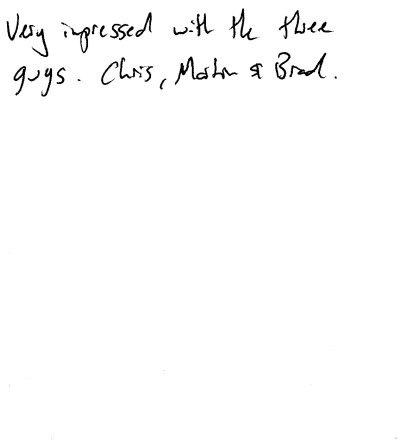 Very impressed with the three
guys. Chris, Martin & Brad.